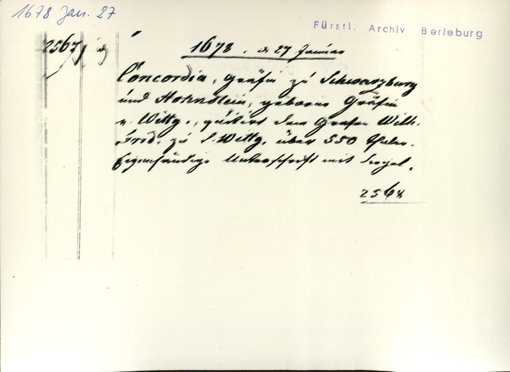 1678 Jan. 27
Fürstl. Archiv Berleburg
2567
1678. d 27 Januar
Concordia, Gräfin zu Schwarzburg
und Hohnstein, geborene Gräfin
v. Wittg., quitirt dem Grafen Wilh.
Frid. zu S. Wittg. über 550 Thaler.
Eigenhändige Unterschrift mit Siegel.
2568